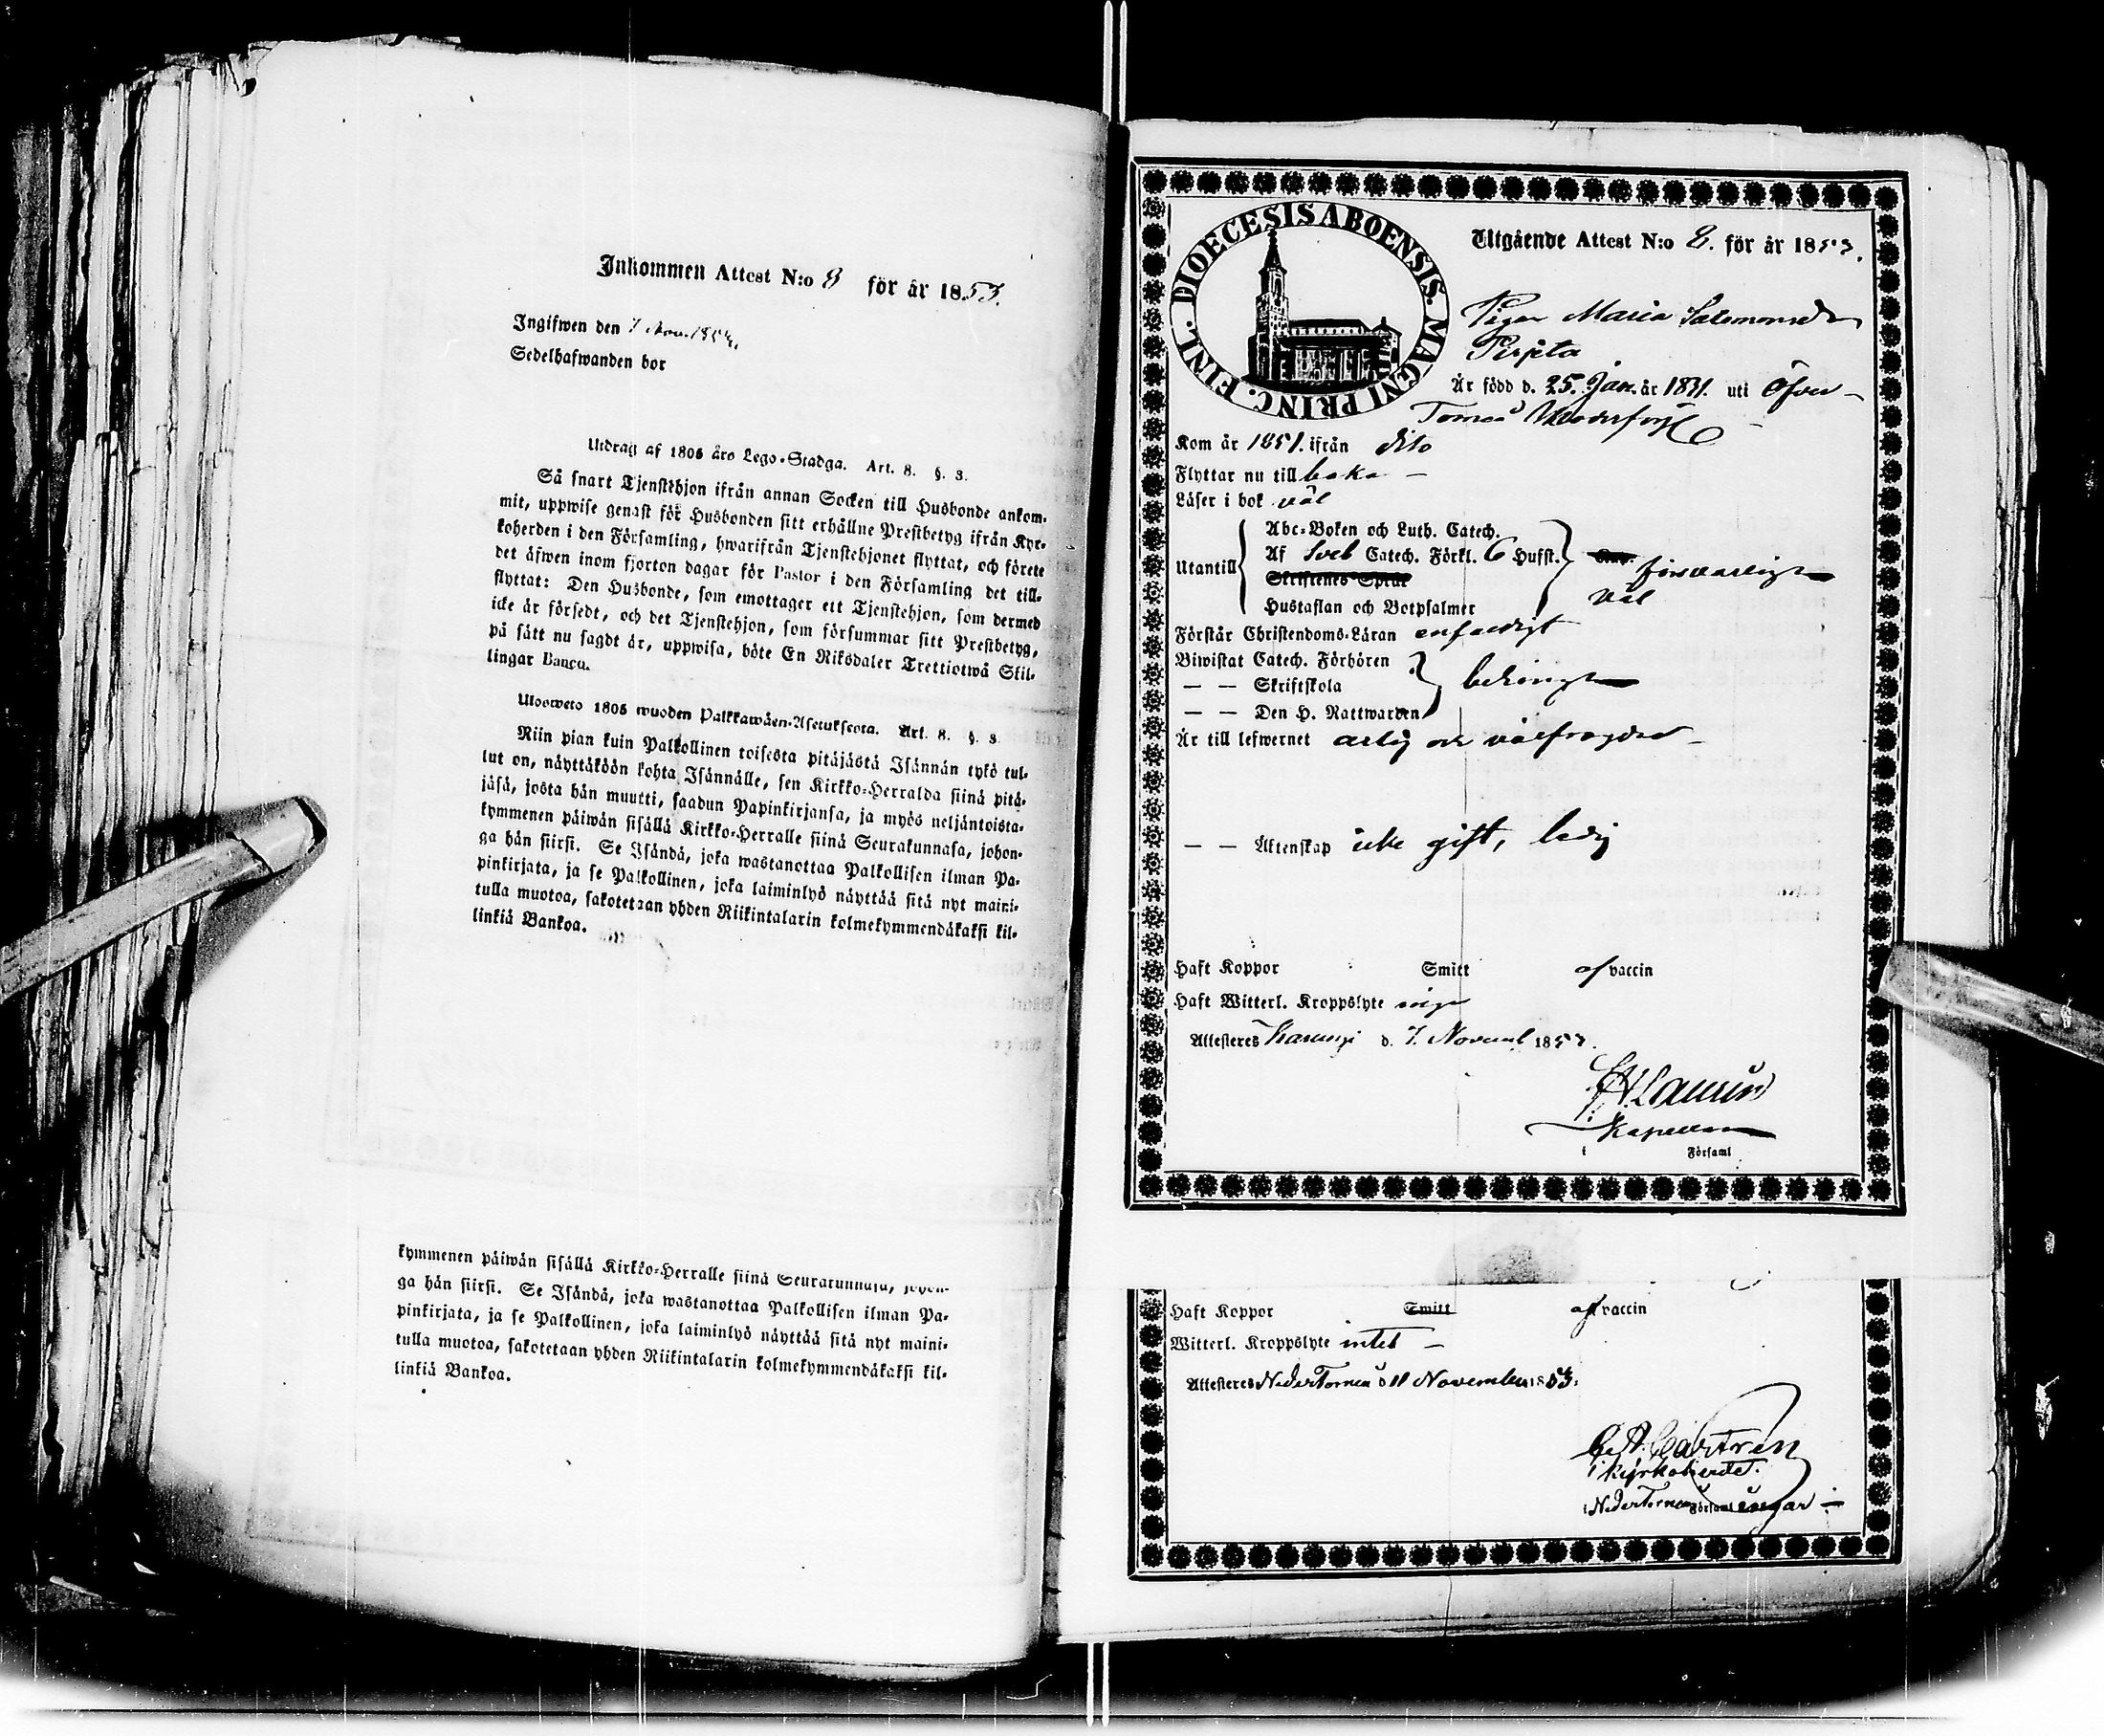 Inkommen Attest N:o 8 för år 1853.
Ingifwen den 7 Nov. 1853.
Sedelhafwanden bor
Utdrag af 1805 års Lego-Stadga. Art. 8. §. 3.
Så snart Tjenstehjon ifrån annan Socken till Husbonde ankom-
mit, uppwise genast för Husbonden sitt erhållne Prestbetyg ifrån Kyr-
koherden i den Församling, hwarifrån Tjenstehjonet flyttat, och förete
det äfwen inom fjorton dagar för Pastor i den Församling det till-
flyttat: Den Husbonde, som emottager ett Tjenstehjon, som dermed
icke är försedt, och det Tjenstehjon, som försummar sitt Prestbetyg,
på sätt nu sagdt är, uppwisa, böte En Riksdaler Trettiotwå Skil-
lingar Banco.
Ulosweto 1805 wuoden Palkkawäen-Asetuksesta. Art. 8. §. 3
Niin pian kuin Palkollinen toisesta pitäjästä Isännän tykö tul-
lut on, näyttäköön kohta Isännälle, sen Kirkko-Herralda siinä pitä-
jäsä, josta hän muutti, saadun Papinkirjansa, ja myös neljäntoista-
kymmenen päiwän sisällä Kirkko-Herralle siinä Seurakunnasa, johon-
ga hän siirsi. Se Isändä, joka wastanottaa Palkollisen ilman Pa-
pinkirjata, ja se Palkollinen, joka laiminlyö näyttää sitä nyt maini-
tulla muotoa, sakotetaan yhden Riikintalarin kolmekymmendäkaksi kil-
linkiä Bankoa.
kymmenen päiwän sisällä Kirkko-Herralle siinä Seurakunnasa, johon-
ga hän siirsi. Se Isändä, joka wastanottaa Palkollisen ilman Pa-
pinkirjata, ja se Palkollinen, joka laiminlyö näyttää sitä nyt maini-
tulla muotoa, sakotetaan yhden Riikintalarin kolmekymmendäkaksi kil-
linkiä Bankoa.
DIOECESIS ABOENSIS. MAGNI PRINC. FINL.
Utgående Attest N:o 8. för år 1853.
Pigan Maria Salomonsdr
Pirjeta
Är född d. 25. Jan. år 1831. uti Öfver-
Torneå
Kom år 1851. ifrån dito
Flyttar nu till baka –
Läser i bok väl
Utantill
Abc-Boken och Luth. Catech.
Af Sveb Catech. Förkl. 6 Hufst.
försvarligt
Skriftenes Språk
Hustaflan och Botpsalmer
väl
Förstår Christendoms-Läran enfaldigt
Biwistat Catech. Förhören
— — Skriftskola
behörigt
— — Den H. Nattwarden
Är till lefwernet ärlig och välfrägdad
— — Äktenskap icke gift, ledig
Haft Koppor Smitt af vaccin
Haft Witterl. Kroppslyte inga
Attesteres Karungi d. 7. Novemb 1853.
Kapellan
i Församl
Haft Koppor Smitt af vaccin
Witterl. Kroppslyte intet –
Attesteres NederTorneå d 11 November 1853.
Castrén
Kyrkoherde.
i NederTorneå Församlingar